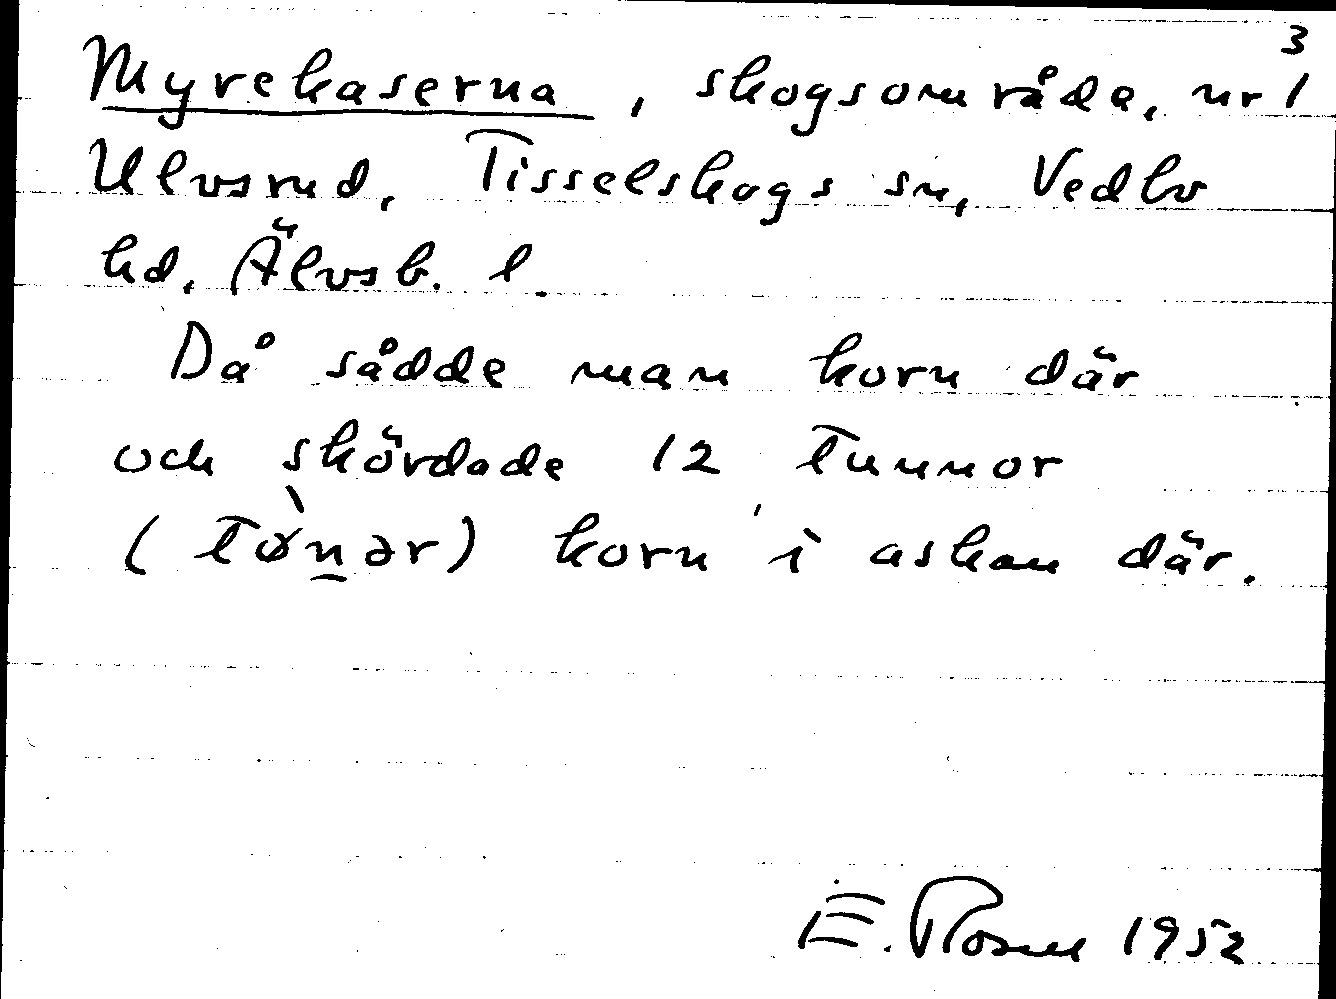 3
Myrekaserna, skogsområde, nr 1
Ulvsrud, Tisselskogs sn, Vedbo
hd, Älvsb. l.
Då sådde man korn där
och skördade 12 tunnor
(tø̀n̲ər) korn i askan där.
E. Rosen 1952